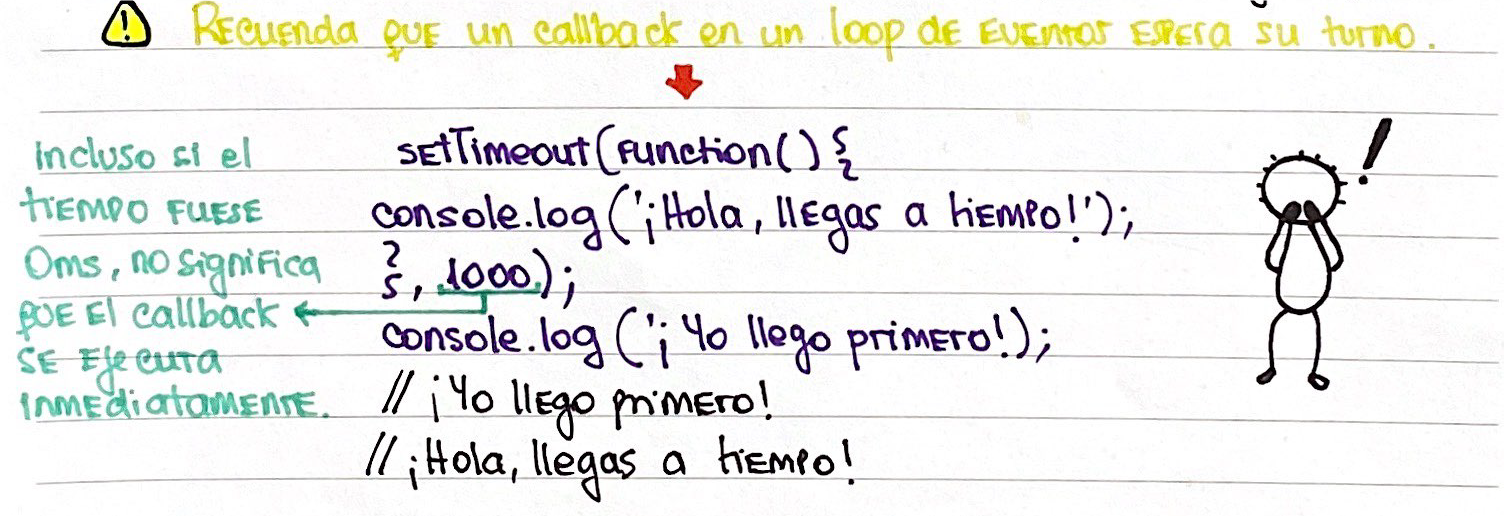 Recuerda que un callback en un loop de eventos espera su turno.
incluso si el
tiempo fuese
0ms, no significa
que el callback
se ejecuta
inmediatamente.
setTimeout(function() {
console.log('¡Hola, llegas a tiempo!');
}, 1000);
console.log('¡Yo llego primero!);
// ¡Yo llego primero!
// ¡Hola, llegas a tiempo!